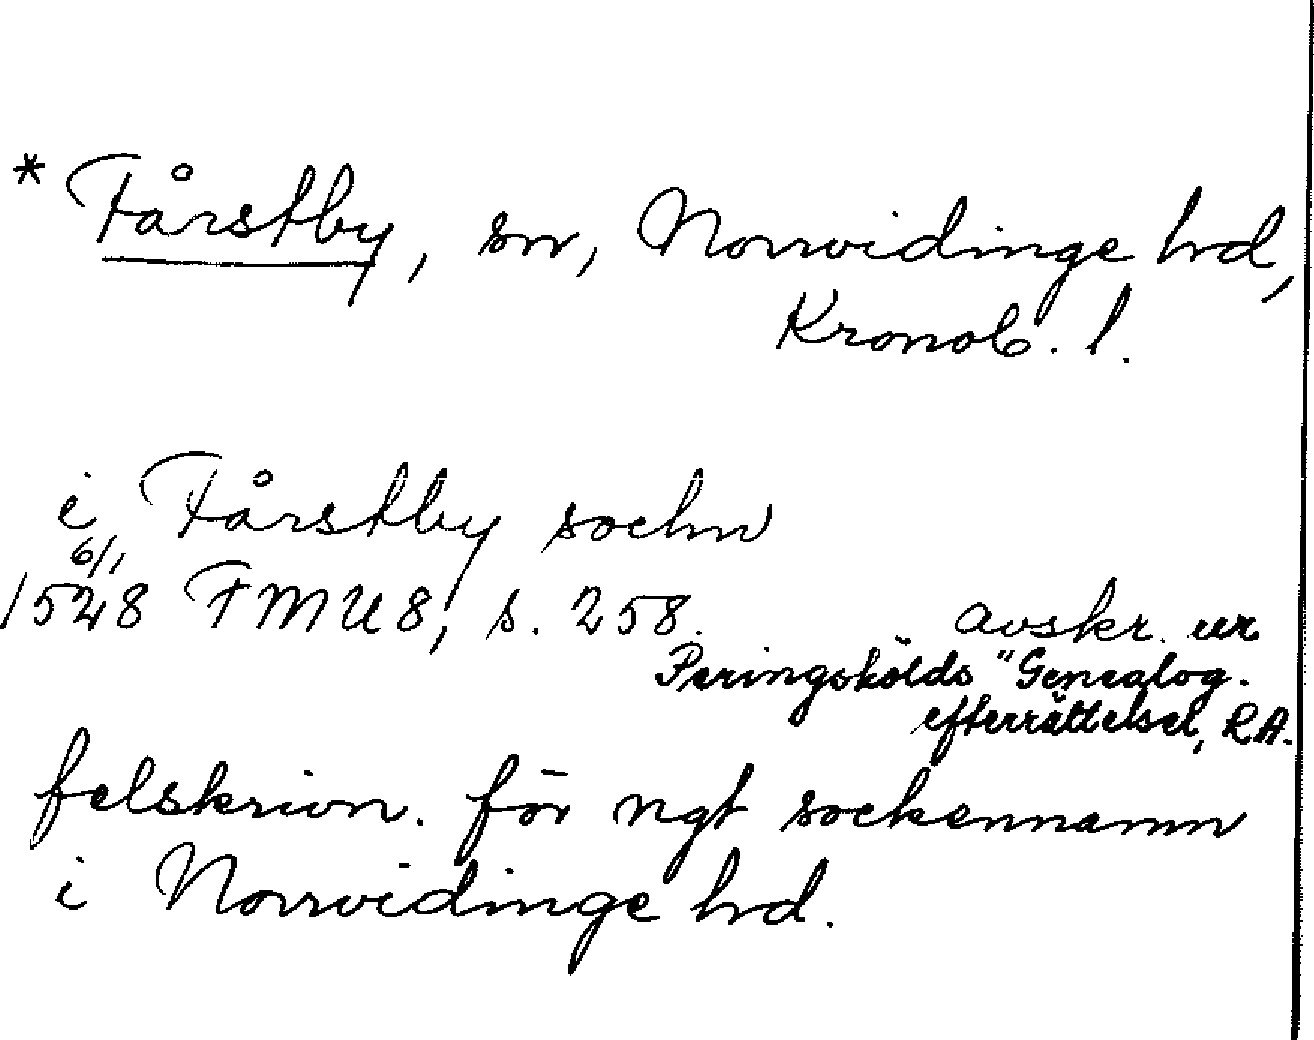 * Fårstby, sn, Norrvidinge hd,
Kronob. l.
i Fårstby sochn
6/1
1528 FMU 8, s. 258.
avskr. ur
Peringskölds "Genealog.
efterrättelser, RA.
felskrivn. för ngt sockennamn
i Norrvidinge hd.